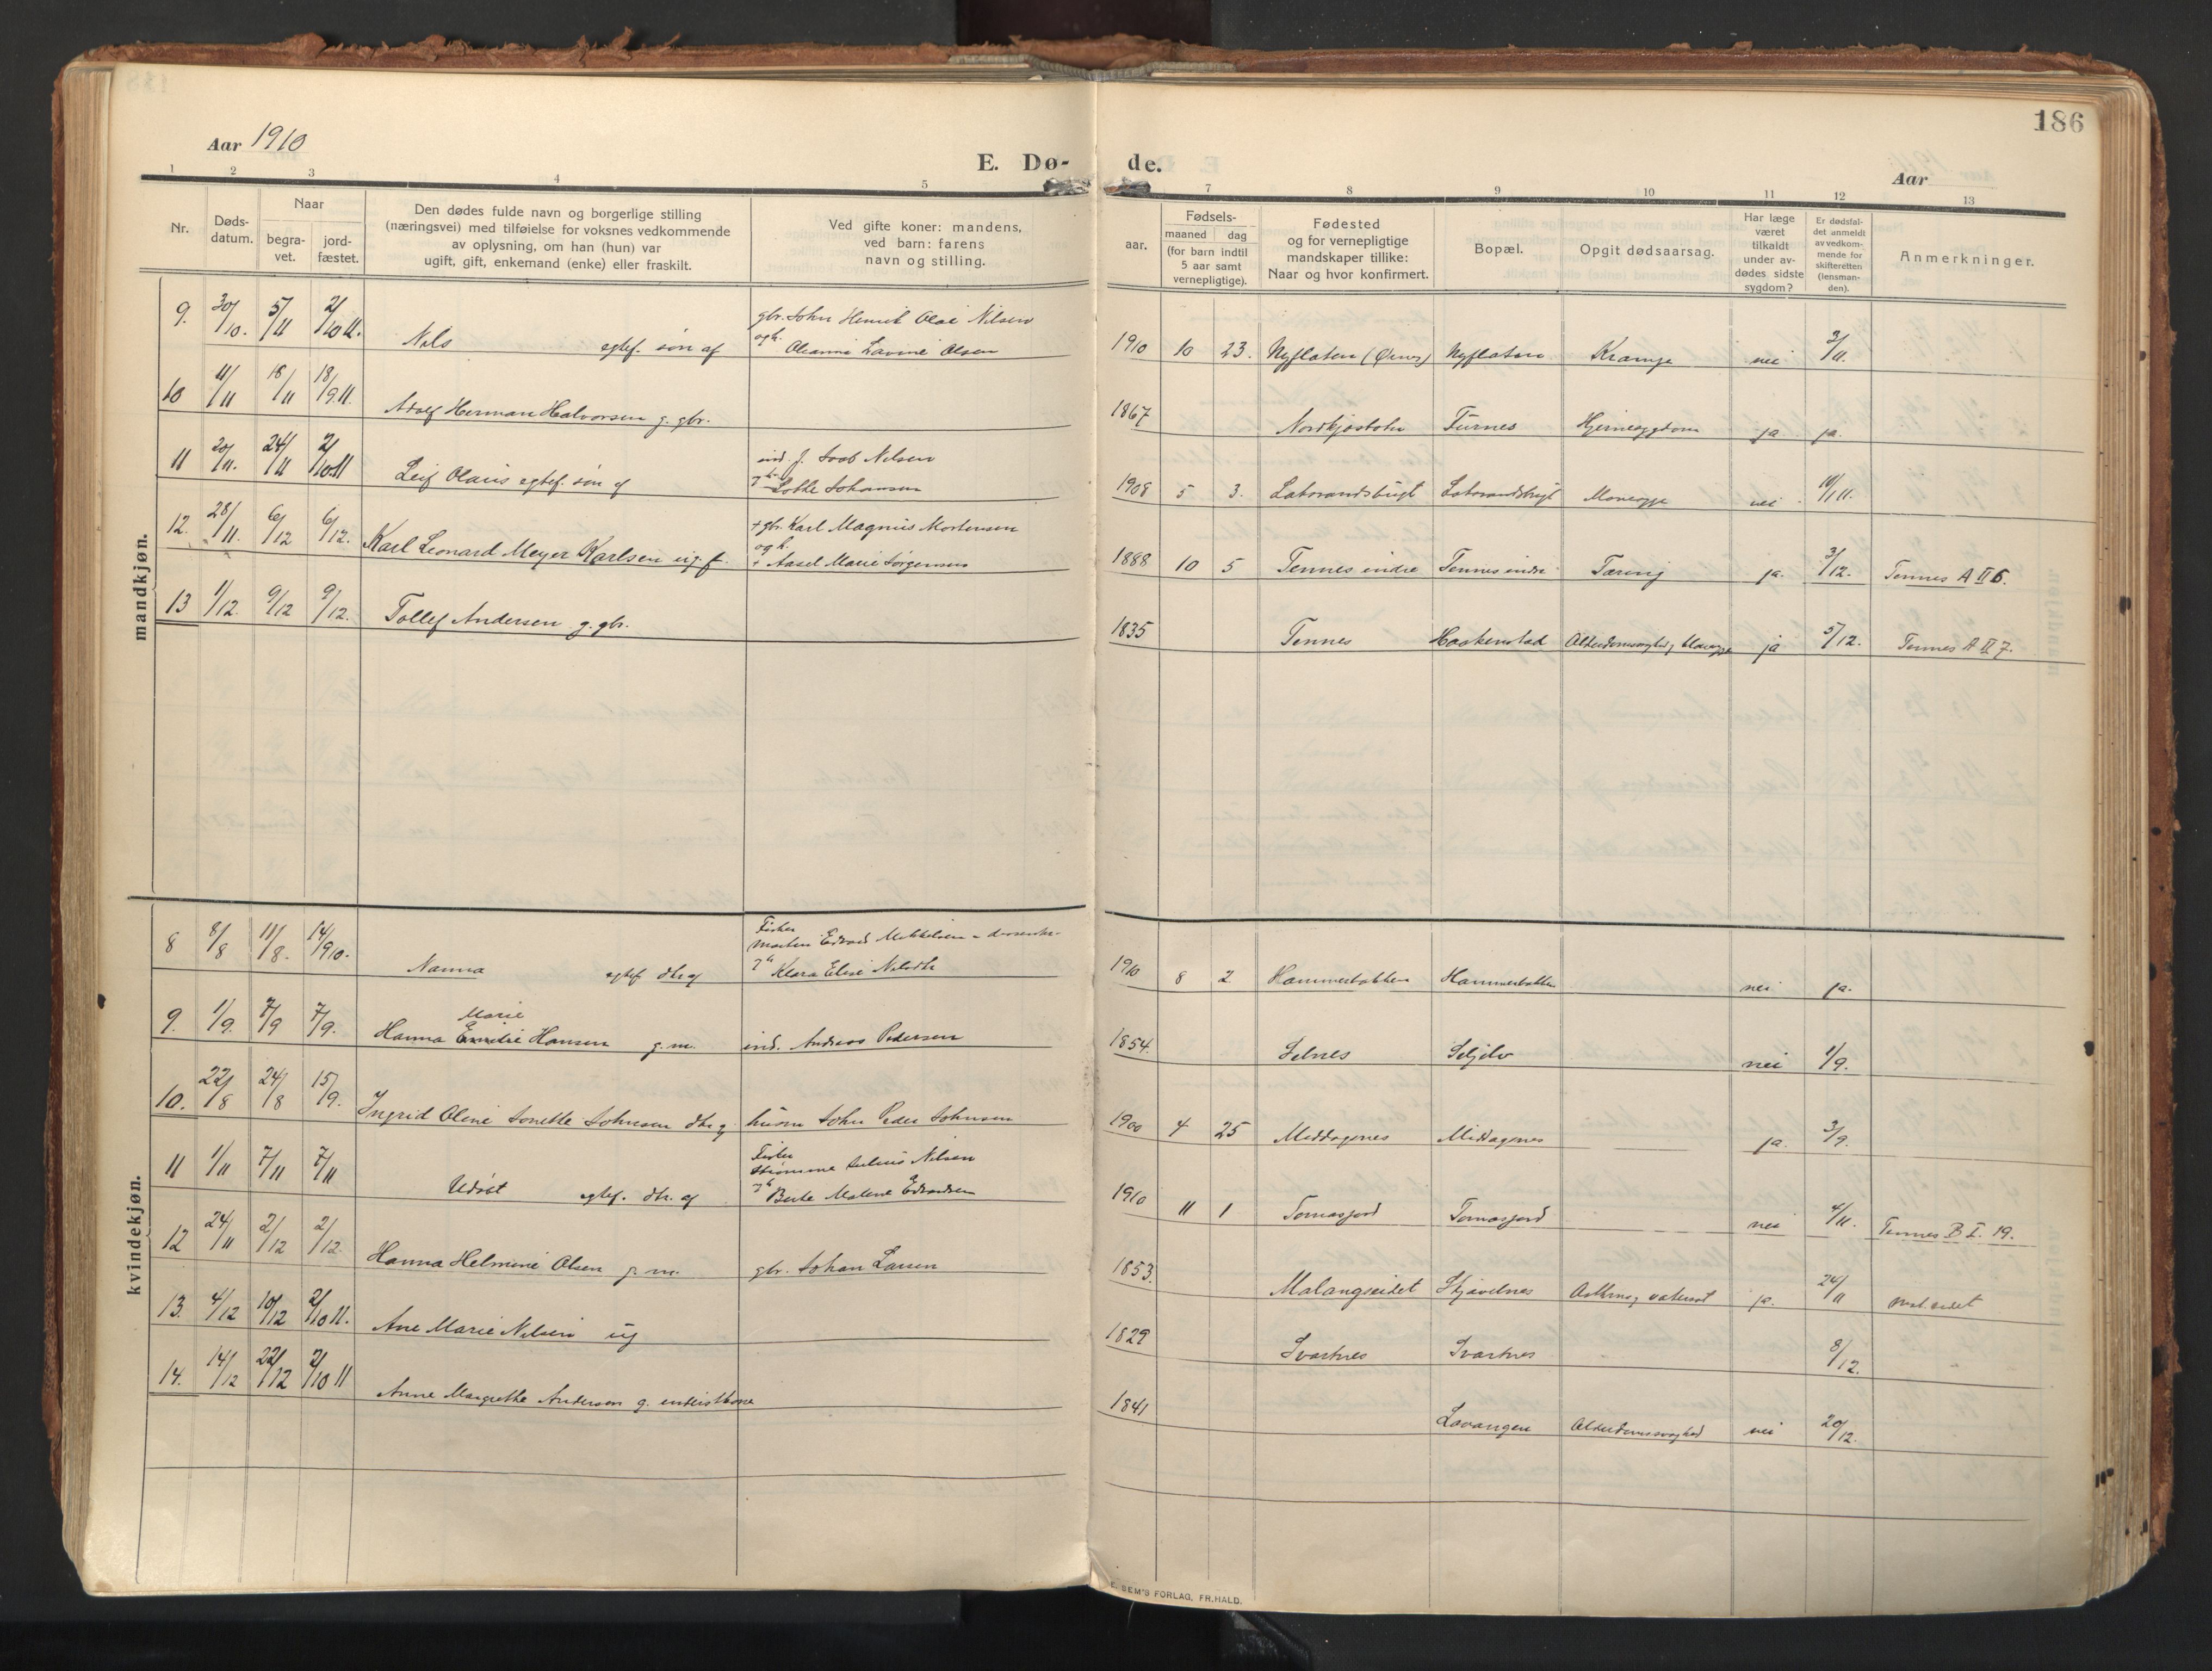 186
Aar 1910
E. Dø- de.
Aar
1 2 3 4 5 7 8 9 10 11 12 13
Nr.
Døds-
datum.
Naar
begra-
vet.
jord-
fæstet.
Den dødes fulde navn og borgerlige stilling
(næringsvei) med tilføielse for voksnes vedkommende
av oplysning, om han (hun) var
ugift, gift, enkemand (enke) eller fraskilt.
Ved gifte koner: mandens,
ved barn: farens
navn og stilling.
Fødsels-
aar.
maaned dag
(for barn indtil
5 aar samt
vernepligtige).
Fødested
og for vernepligtige
mandskaper tillike:
Naar og hvor konfirmert.
Bopæl.
Opgit dødsaarsag.
Har læge
været
tilkaldt
under av-
dødes sidste
sygdom?
Er dødsfal-
det anmeldt
av vedkom-
mende for
skifteretten
(lensman-
den).
Anmerkninger.
mandkjøn.
gbr. John Henrik Olai Nilsen
9. 30/10. 5/11 2/10 11. Nils egtef. søn af ogh. Oleanna Lavine Olsen 1910 10 23. Nyflaten Nyflaten Krampe nei 3/11.
10 11/11 18/11 18/9 11. Adolf Herman Halvorsen g. gbr. 1867 Nordkjosbotn Furnes Hjernesygdom ja ja.
ind. J. Saab Nilsen
11 20/11. 24/11 2/10 11 Leif Olaus egtef. søn af Lotte Johansen 1908 5 3. nei
+ gbr. Karl Magnus Mortensen
og h.
12. 28/11. 6/12 6/12. Karl Leonard Meyer Karlsen ug. f. + Aasel Marie Jørgensen 1888 10 5 Tennes indre Tennes indre Tæring ja. 3/12. Tennes A II 6.
13 1/12. 9/12 9/12. Tollef Andersen g. gbr. 1835 Tennes Haakenstad ja 5/12. Tennes A II 7.
kvindekjøn.
Fisker
Martin Edvard Mikkelsen
8 8/8 11/8. 14/9 10. Nanna egtef. dtr. af Klara Elise Nilsdtr 1910 8 2 Hammerbakken Hammerbakken nei ja.
Marie
9. 1/9. 7/9 7/9. Hanna Emilie Hansen g. m. ind. Andreas Pedersen 1854. Selnes Seljelv nei 1/9.
10. 22/8 24/8 15/9. Ingrid Oline Jonette Johnsen dtr. af husm John Peder Johnsen 1900 4 25 Middagsnes Middagsnes ja. 3/9.
Fisker
Strømme Julius Nilsen
11 1/11 7/11 7/11 Udøbt egtef. dtr. af Berte Malene Edvardsen 1910 11 1 Tomasjord Tomasjord nei 4/11. Tennes B I. 19.
12 24/11 2/12 2/12. Hanna Helmine Olsen g. m. gbr. Johan Larsen 1853. Malangseidet Skjavelnes ja. 24/11
13. 4/12 10/12 2/10 11. Ane Marie Nilsen ug 1829 Svartnes Svartnes 8/12.
14. 14/12 22/12 2/10 11 Anne Margrethe Andersen g. 1841 Lavangen Alderdomssvaghed nei 20/12.
E. SEM'S FORLAG, FR.HALD.